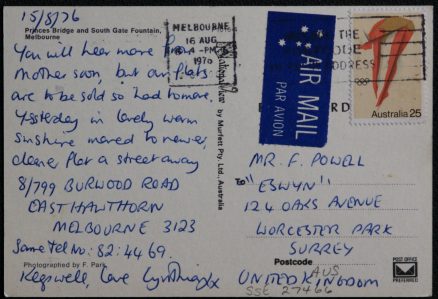 15/8/76
Princes Bridge and South Gate Fountain,
Melbourne
You will hear more from
Mother soon, but our flats
are to be sold so had to move.
Yesterday in lovely warm
sunshine moved to newer,
cleaner flat a street away
8/799 BURWOOD ROAD
EAST HAWTHORN
MELBOURNE 3123
Same Tel No: 82:4469.
Photographed by F. Park
Keep well, love
by Murfett Pty. Ltd., Australia
MELBOURNE
16 AUG
4 - PM
197
AIR MAIL
PAR AVION
THE
ADDRESS
Australia 25
RD
MR. F. POWELL
To "ESWYN"
124 OAKS AVENUE
WORCESTER PARK
SURREY
Postcode
UNITED KINGDOM
AUS
SSE 27466
POST OFFICE
PREFERRED